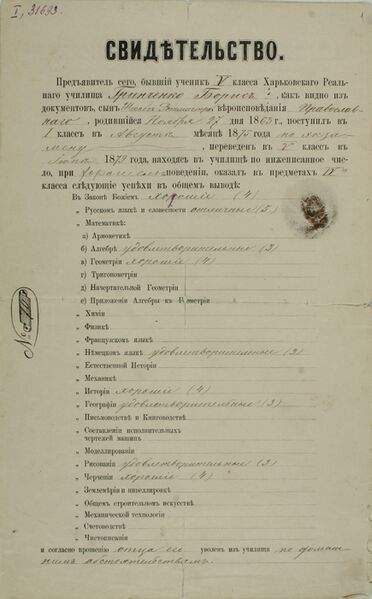 I, 31693
СВИДѢТЕЛЬСТВО.
Предъявитель сего, бывшій ученикъ V класса Харьковскаго Реаль-
наго училища Гринченко Борисъ, какъ видно изъ
документовъ, сынъ вѣроисповѣданія Православ-
наго, родившійся Ноября 27 дня 1863 г., поступилъ въ
I классъ въ Августѣ мѣсяцѣ 1875 года по экза-
мену, переведенъ въ V классъ въ
1879 года, находясь въ училищѣ по нижеписанное чис-
ло, при хорошемъ поведеніи, оказалъ въ предметахъ IV
класса слѣдующіе успѣхи въ общемъ выводѣ:
Въ Законѣ Божіемъ хорошіе (4)
„ Русскомъ языкѣ и словесности отличные (5)
„ Математикѣ:
а) Ариѳметикѣ
б) Алгебрѣ удовлетворительные (3)
в) Геометріи хорошіе (4)
г) Тригонометріи
д) Начертательной Геометріи
е) Приложеніи Алгебры къ Геометріи
„ Химіи
„ Физикѣ
„ Французскомъ языкѣ
„ Нѣмецкомъ языкѣ удовлетворительные (3)
„ Естественной Исторіи
„ Механикѣ
„ Исторіи хорошіе (4)
„ Географіи удовлетворительные (3)
„ Письмоводствѣ и Книговодствѣ
„ Составленіи исполнительныхъ
чертежей машинъ
„ Моделлированіи
„ Рисованіи удовлетворительные (3)
„ Черченіи хорошіе (4)
„ Землемѣріи и нивеллировкѣ
„ Общемъ строительномъ искусствѣ
„ Механической технологіи
„ Счетоводствѣ
„ Чистописаніи
и согласно прошенію отца его уволенъ изъ училища по домаш-
нимъ обстоятельствамъ.
№